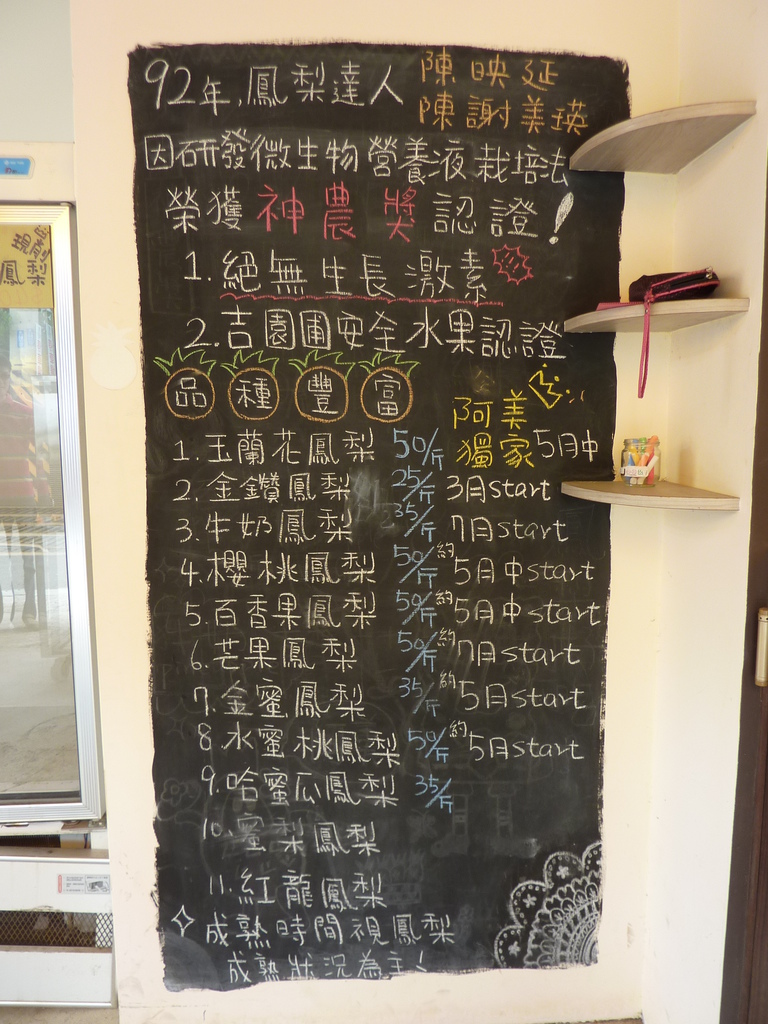 92年,鳳梨達人 陳映延
陳謝美瑛
因研發微生物營養液栽培法
榮獲神農獎認證!
1.絕無生長激素
2.吉園圃安全水果認證
品種豐富
阿美獨家
1.玉蘭花鳳梨 50/斤 5月中
2.金鑽鳳梨 25/斤 3月start
3.牛奶鳳梨 35/斤 7月start
4.櫻桃鳳梨 50/斤 約5月中start
5.百香果鳳梨 50/斤 約5月中start
6.芒果鳳梨 50/斤 約7月start
7.金蜜鳳梨 35/斤 約5月start
8.水蜜桃鳳梨 50/斤 約5月start
9.哈蜜瓜鳳梨 35/斤
10.蜜梨鳳梨
11.紅龍鳳梨
成熟時間視鳳梨
成熟狀況為主!
現削
鳳梨